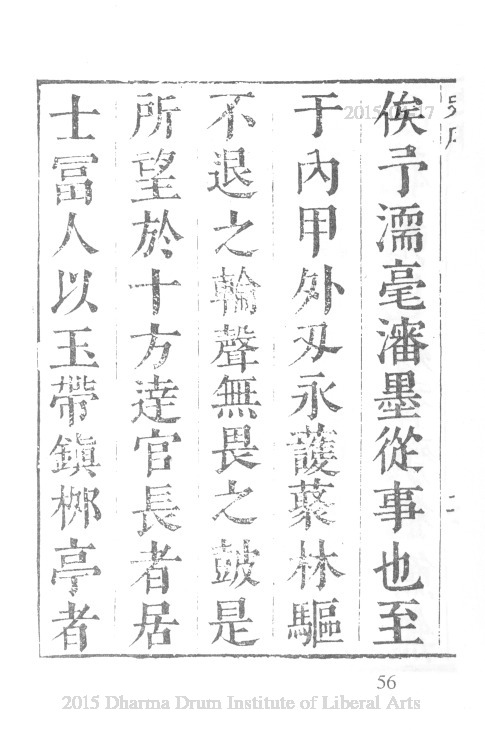 俟予濡毫瀋墨從事也至
于內甲外刃永護蕟林驅
不退之輪聲無畏之皷是
所望於十方達官長者居
士冨人以玉帶鎮梛亭者
56
2015 Dharma Drum Institute of Liberal Arts